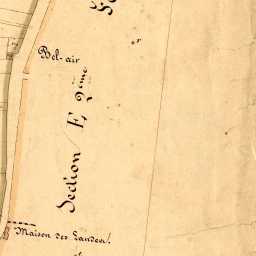 Bel-air
Section E, 2ème
Maison des Landes.